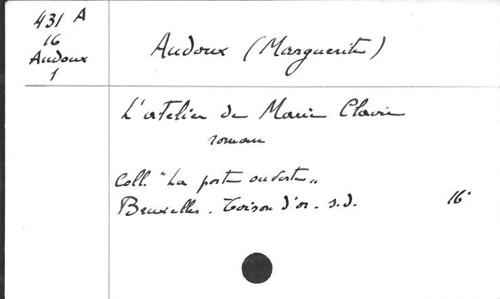 431 A
16
Audoux
1
Audoux (Marguerite)
L'atelier de Marie Claire
roman
Coll. "La porte ouverte"
Bruxelles. Toison d'or. s.d. 16°